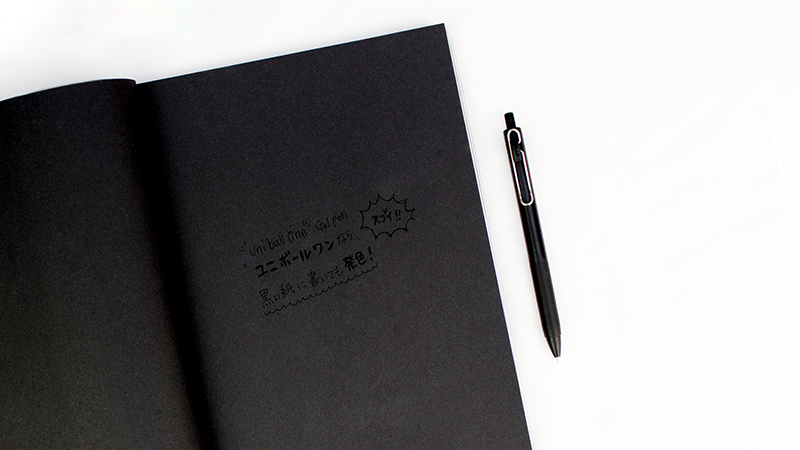 uniball One Gel pen
ユニボールワンなら、
スゴイ!!
黒い紙に書いても発色!